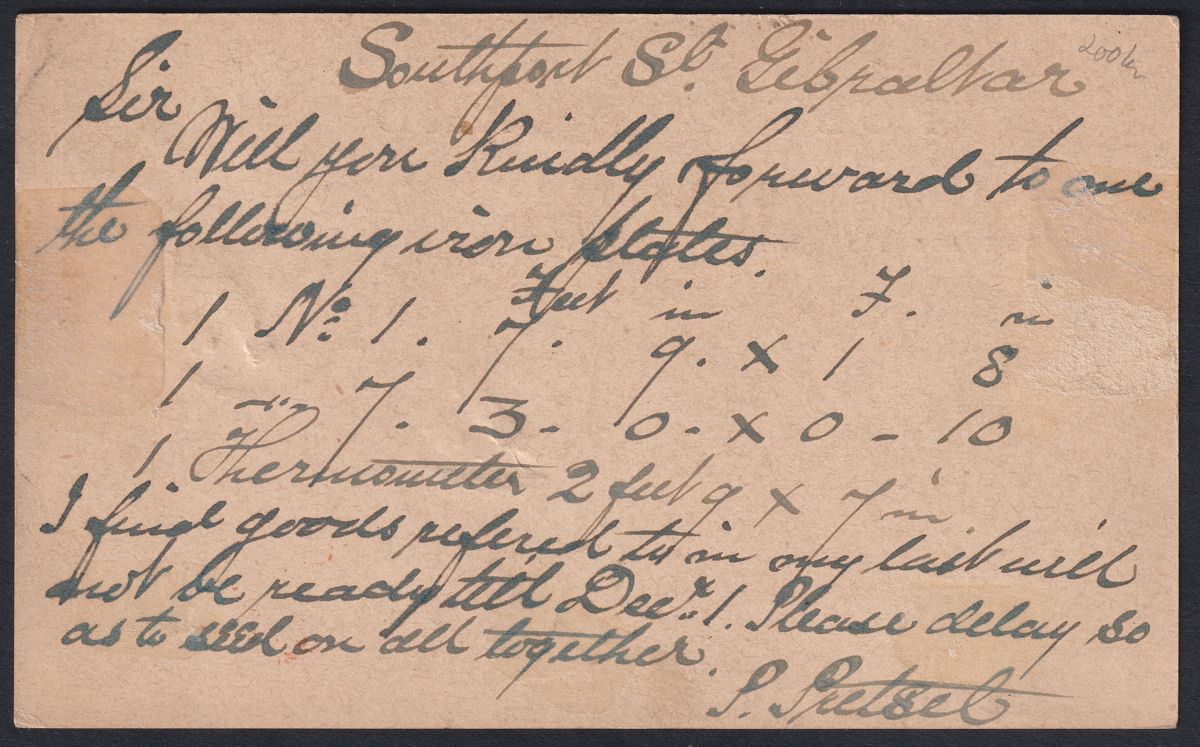 Southport St. Gibraltar
Sir
Will you Kindly forward to me
the following iron plates.
Feet in F. in
1 No 1. 7. 9. x 1 8
1 " 7. 3 - 0 - x 0 - 10
1 Thermometer 2 feet 9 x 7 in.
I find goods refered to in my last will
not be ready till Decr. 1. Please delay so
as to send on all together.